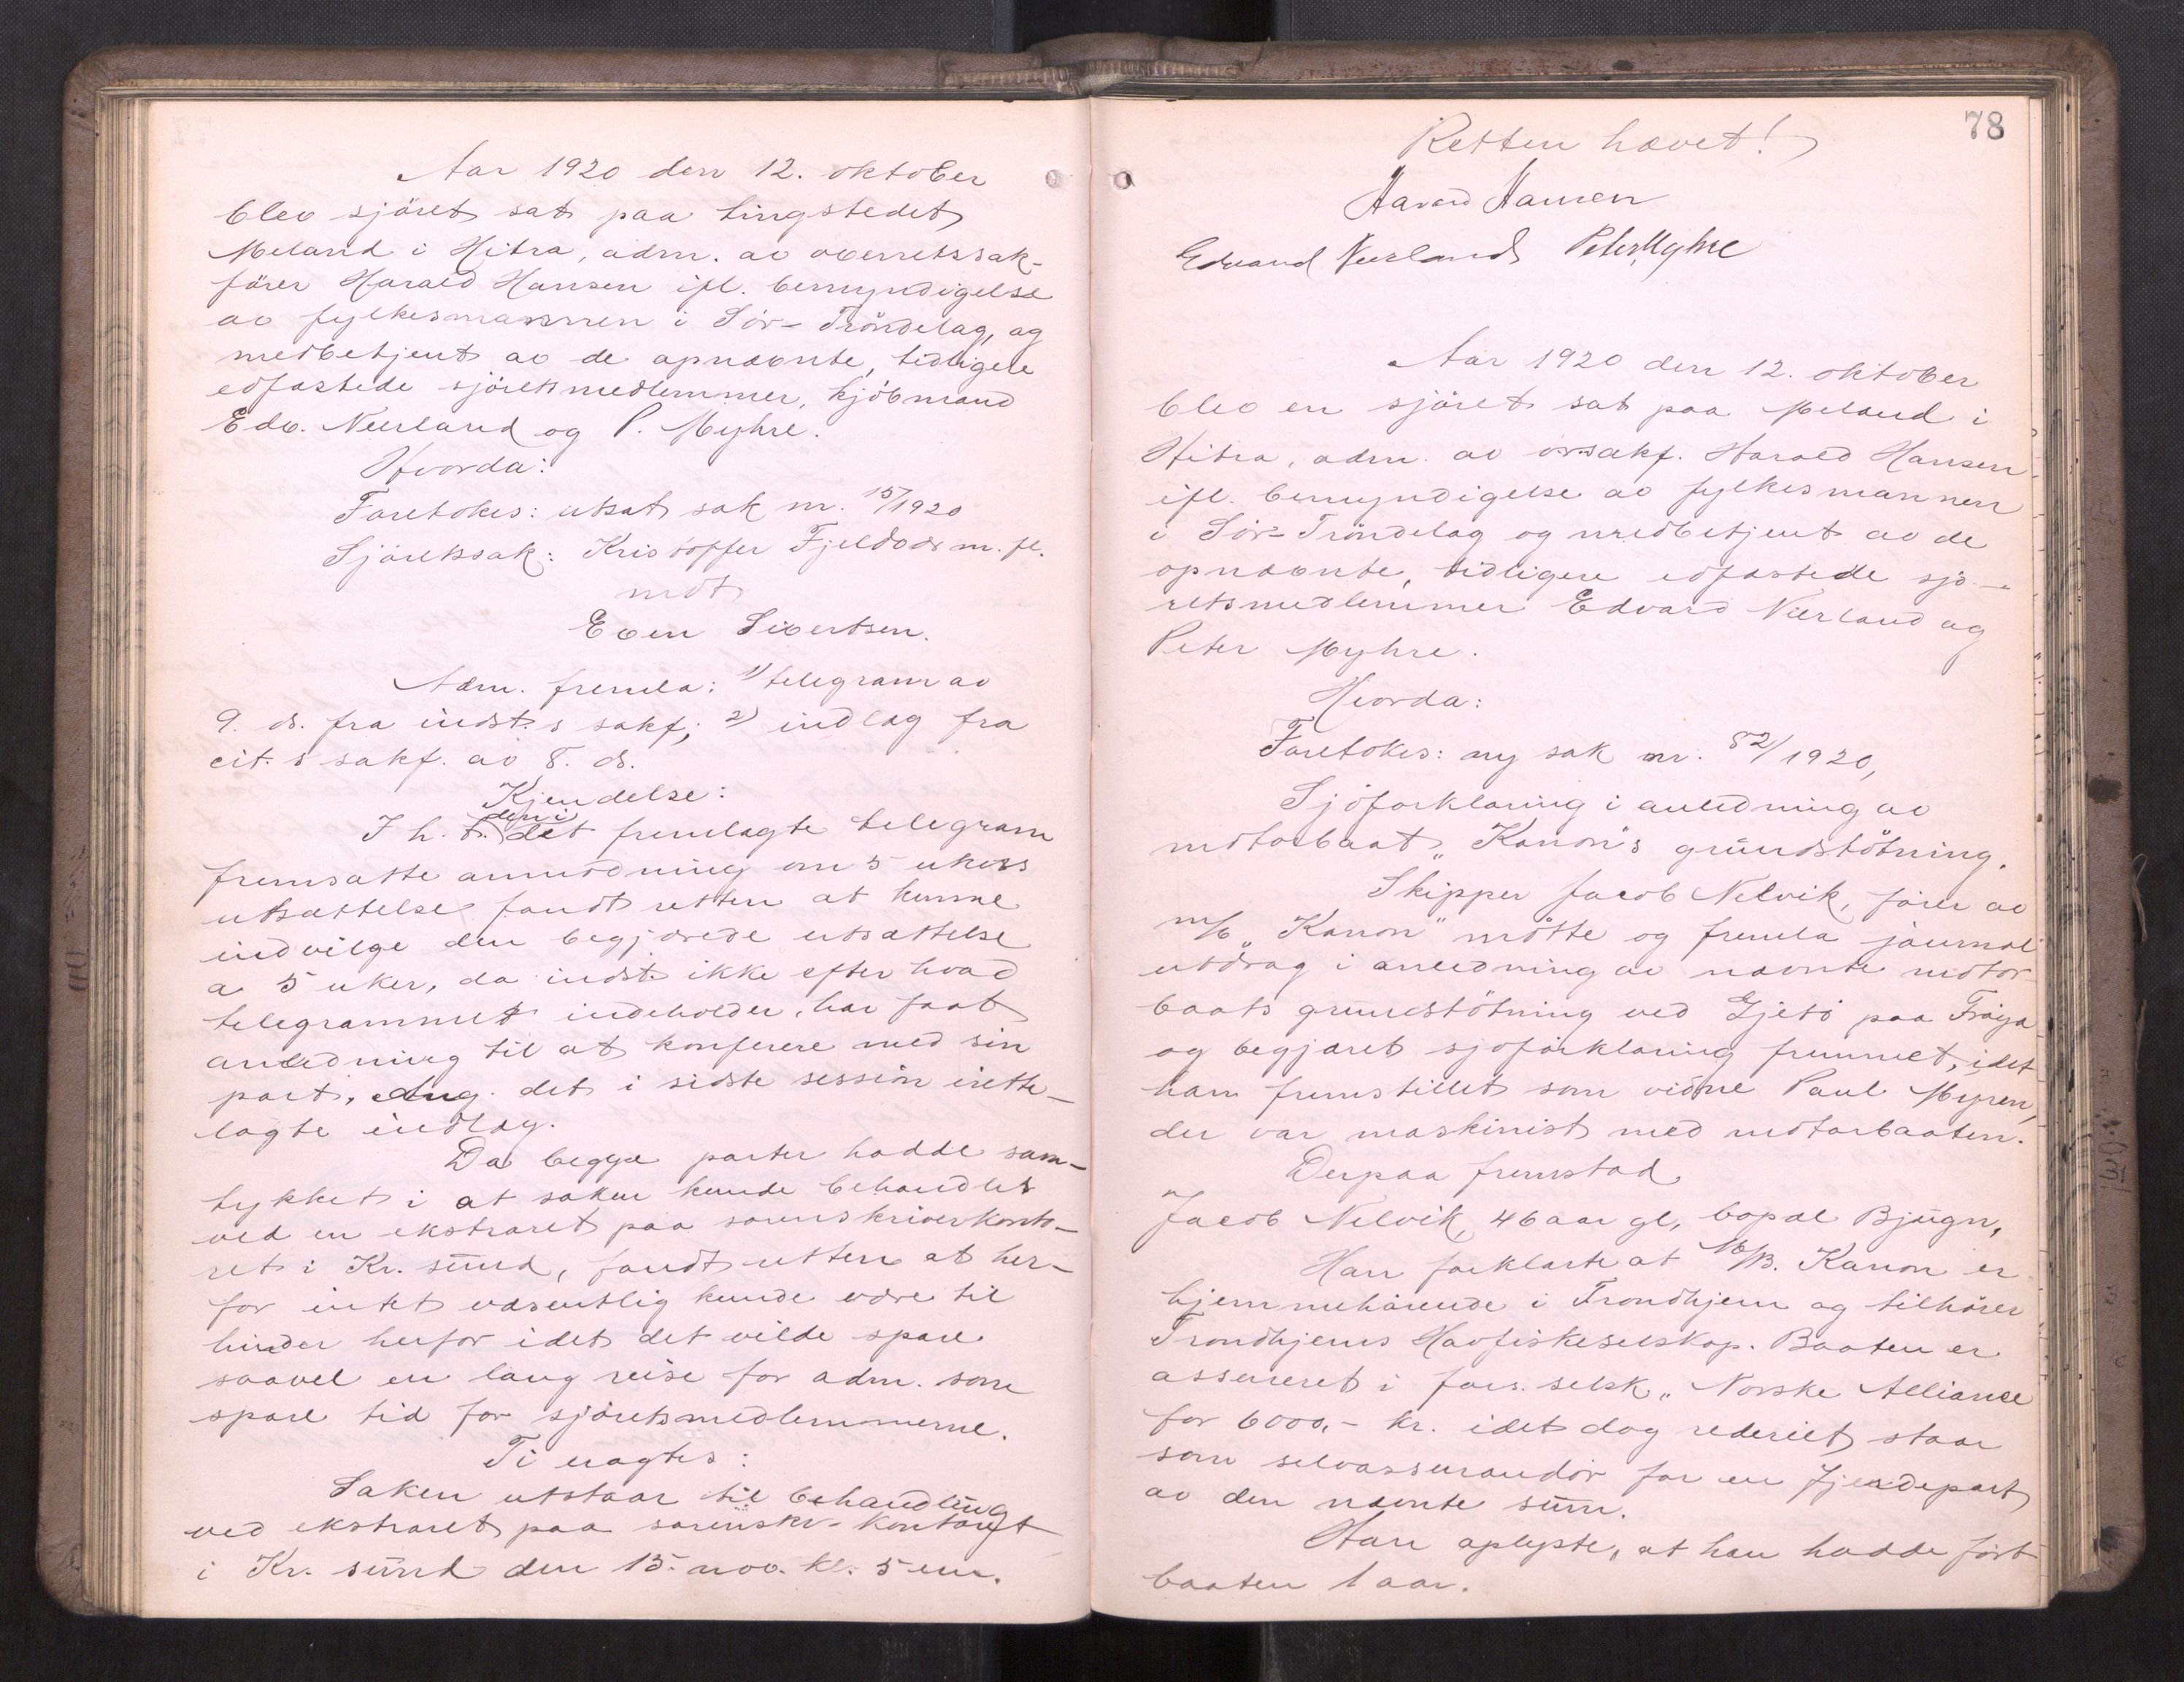 Aar 1920 den 12. oktober
blev sjøret sat paa tingstedet
Meland i Hitra, adm. av overretssak-
fører Harald Hansen ifl. bemyndigelse
av fylkesmannen i Sör-Tröndelag, og
medbetjent av de opnævnte, tidligere
edfæstede sjöretsmedlemmer, kjöbmand
Edv. Neerland og P. Myhre.
Hvorda:
Foretokes: utsat sak nr. 15/1920
Sjöretssak: Kristoffer Fjeldvær m. fl.
mot
Even Sivertsen.
Adm. fremla: 1) telegram av
9. ds. fra indst.s sakf; 2) indlæg fra
cit.s sakf. av 8. ds.
Kjendelse:
I h. t. den i det fremlagte telegram
fremsatte anmodning om 5 ukers
utsættelse fandt retten at kunne
indvilge den begjærede utsættelse
a 5 uker, da indst. ikke efter hvad
telegrammet indeholder, har faat
anledning til at konferere med sin
part, ang. det i sidste session irette-
lagte indlæg.
Da begge parter hadde sam-
tykket i at saken kunde behandles
ved en ekstraret paa sorenskriverkonto-
ret i Kr. sund, fandt retten at her-
for intet væsentlig kunde være til
hinder herfor idet det vilde spare
saavel en lang reise for adm. som
spare tid for sjöretsmedlemmerne.
Ti eragtes:
Saken utstaar til behandling
ved ekstraret paa sorenskr.-kontoret
i Kr. sund den 15. nov. kl. 5 em.
78
Retten hævet!
Harald Hansen
Edvard Neerland Peter Myhre
Aar 1920 den 12. oktober
blev en sjöret sat paa Meland i
Hitra, adm. av orsakf. Harald Hansen
ifl. bemyndigelse av fylkesmannen
i Sör-Tröndelag og medbetjent av de
opnævnte, tidligere edfæstede sjö-
retsmedlemmer Edvard Neerland og
Peter Myhre.
Hvorda:
Foretokes: ny sak nr. 82/1920,
Sjöforklaring i anledning av
motorbaat „Kanon"s grundstötning.
Skipper Jacob Nelvik, förer av
m/b „Kanon" mötte og fremla journal
utdrag i anledning av nævnte motor-
baats grundstötning ved Gjetö paa Fröya
og begjæret sjöforklaring fremmet, idet
han fremstillet som vidne Paul Myren,
der var maskinist med motorbaaten.
Derpaa fremstod
Jacob Nelvik, 46 aar gl, bopæl Bjugn,
Han forklarte at M/B. Kanon er
hjemmehörende i Trondhjem og tilhörer
Trondhjems Havfiskeselskap. Baaten er
assureret i fors. selsk „Norske Alliance
for 6000,- kr. idet dog rederiet staar
som selvassurandör for en fjerdepart
av den nævnte sum.
Han oplyste, at han hadde fört
baaten 1 aar.